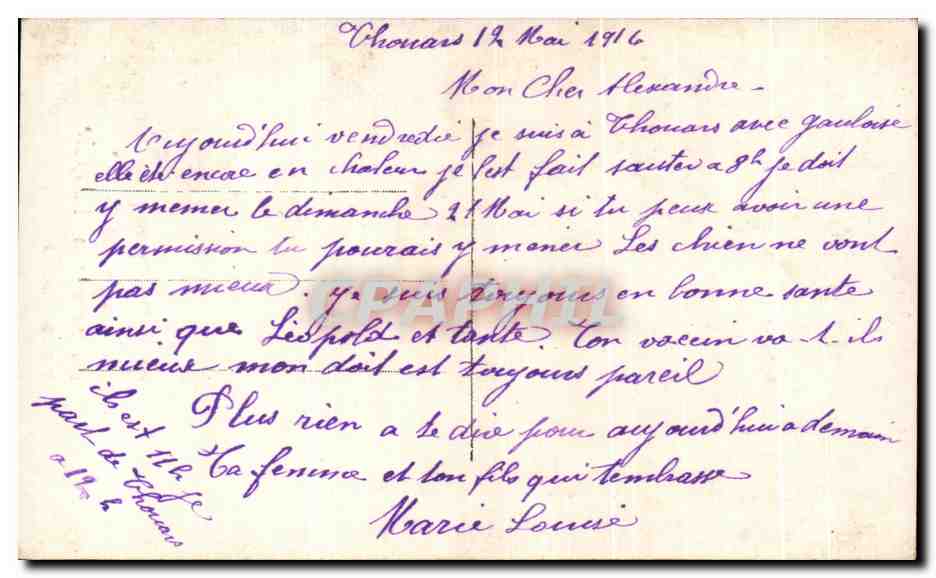 Thouars 12 Mai 1916
Mon Cher Alexandre -
Aujourd'hui vendredie je suis à Thouars avec gauloise
elle et encore en chaleur je l'est fait sauter a 8h je doit
y mener le dimanche 21 Mai si tu peux avoir une
permission tu pourais y mener Les chien ne vont
pas mieux. je suis toujours en bonne sante
ainsi que Léopold et tante. Ton vaccin va-t-ils
mieux mon doit est toujours pareil
Plus rien a te dire pour aujourd'hui a demain
Ta femme et ton fils qui t'embrasse
Marie Louise
il est 11h je
part de Thouars
a 12 h
CPAPHIL